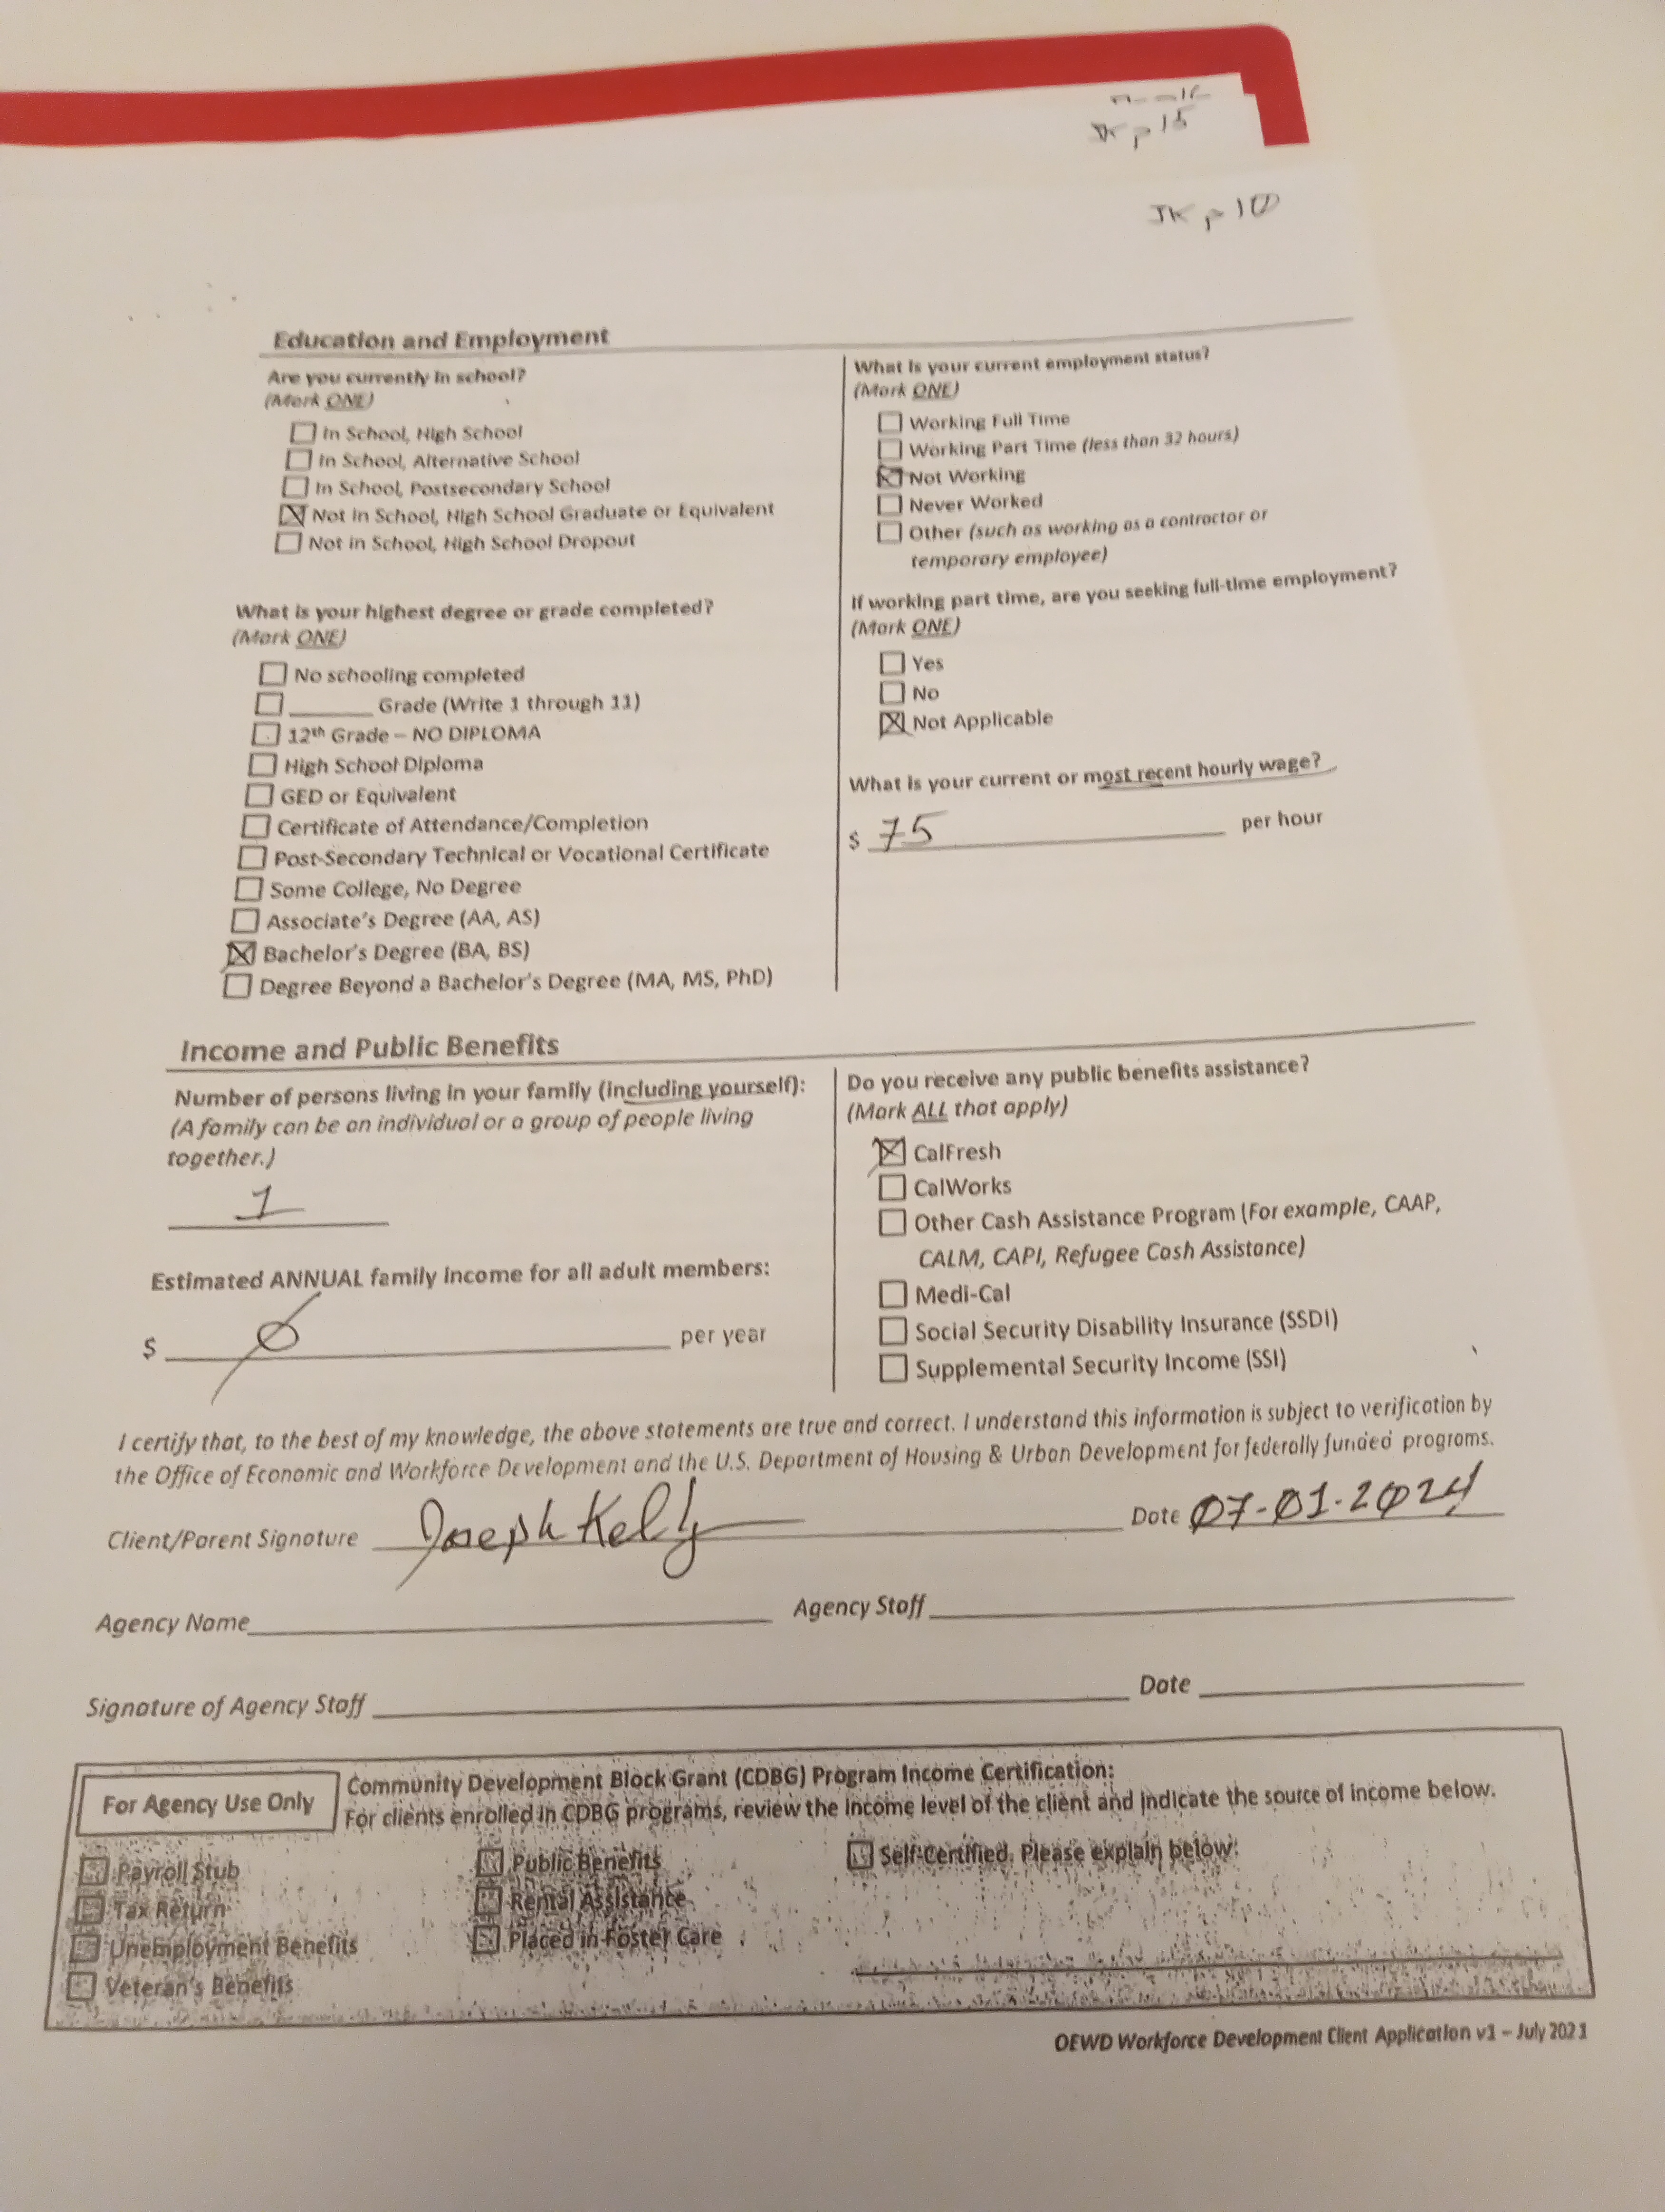 p 15
JK p 10
Education and Employment
Are you currently in school?
(Mark ONE)
In School, High School
In School, Alternative School
In School, Postsecondary School
Not in School, High School Graduate or Equivalent
Not in School, High School Dropout
What is your highest degree or grade completed?
(Mark ONE)
No schooling completed
______ Grade (Write 1 through 11)
12th Grade – NO DIPLOMA
High School Diploma
GED or Equivalent
Certificate of Attendance/Completion
Post-Secondary Technical or Vocational Certificate
Some College, No Degree
Associate's Degree (AA, AS)
Bachelor's Degree (BA, BS)
Degree Beyond a Bachelor's Degree (MA, MS, PhD)
What is your current employment status?
(Mark ONE)
Working Full Time
Working Part Time (less than 32 hours)
Not Working
Never Worked
Other (such as working as a contractor or
temporary employee)
If working part time, are you seeking full-time employment?
(Mark ONE)
Yes
No
Not Applicable
What is your current or most recent hourly wage?
$ 75 per hour
Income and Public Benefits
Number of persons living in your family (including yourself):
(A family can be an individual or a group of people living
together.)
1
Estimated ANNUAL family income for all adult members:
$ 0 per year
Do you receive any public benefits assistance?
(Mark ALL that apply)
CalFresh
CalWorks
Other Cash Assistance Program (For example, CAAP,
CALM, CAPI, Refugee Cash Assistance)
Medi-Cal
Social Security Disability Insurance (SSDI)
Supplemental Security Income (SSI)
I certify that, to the best of my knowledge, the above statements are true and correct. I understand this information is subject to verification by
the Office of Economic and Workforce Development and the U.S. Department of Housing & Urban Development for federally funded programs.
Client/Parent Signature Joseph Kelly Date 07-01-2024
Agency Name Agency Staff
Signature of Agency Staff Date
For Agency Use Only
Community Development Block Grant (CDBG) Program Income Certification:
For clients enrolled in CDBG programs, review the income level of the client and indicate the source of income below.
Payroll Stub
Tax Return
Unemployment Benefits
Veteran's Benefits
Public Benefits
Rental Assistance
Placed in Foster Care
Self-Certified. Please explain below:
OEWD Workforce Development Client Application v1 – July 2021